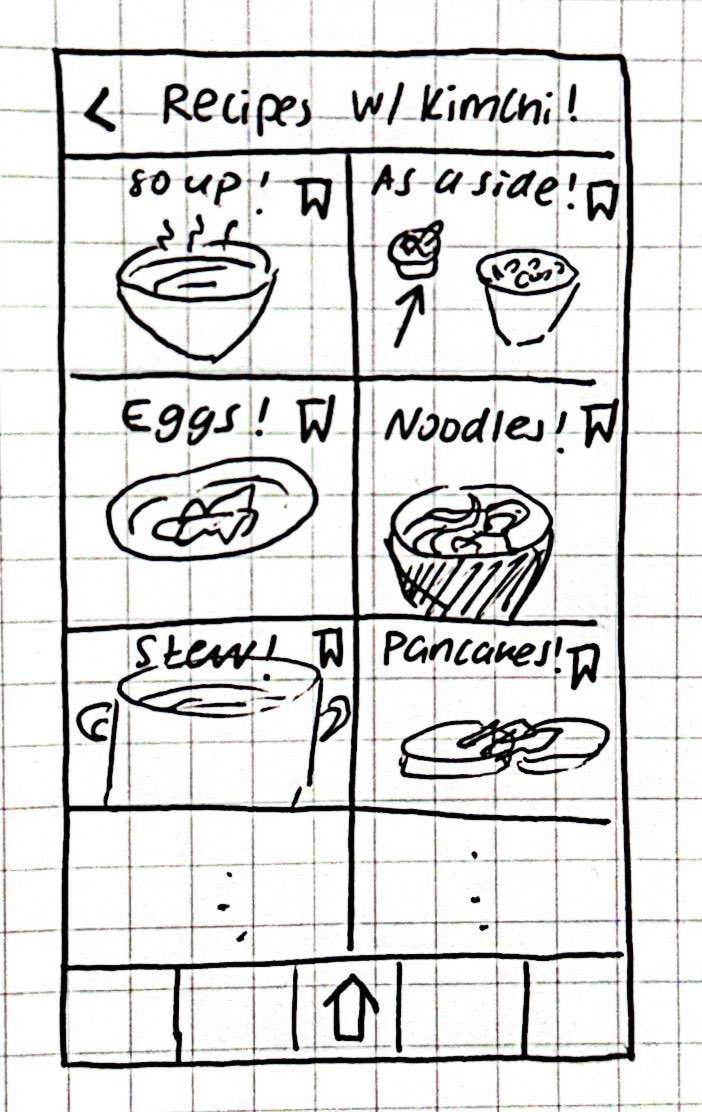 < Recipes w/ Kimchi!
Soup!
As a side!
Eggs!
Noodles!
Stew!
Pancakes!